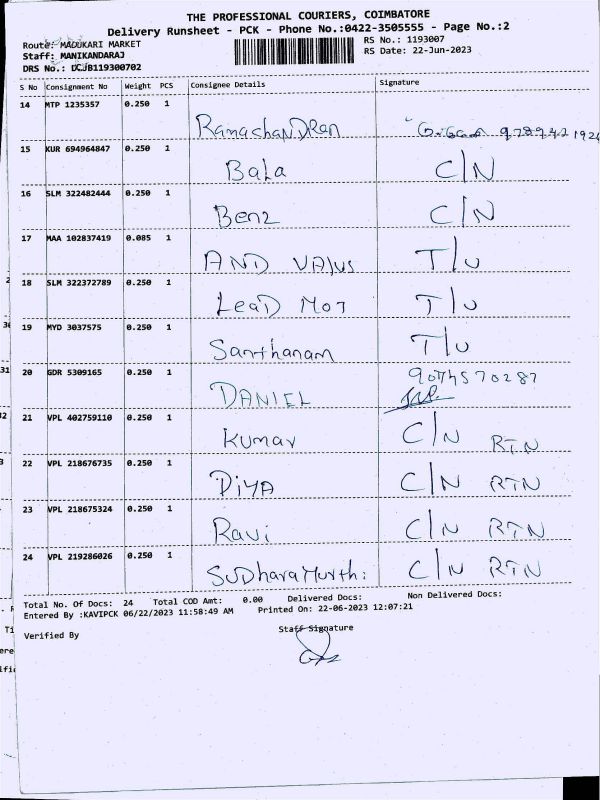 THE PROFESSIONAL COURIERS, COIMBATORE
Delivery Runsheet - PCK - Phone No.:0422-3505555 - Page No.:2
Route: MADUKARI MARKET
RS No.: 1193007
Staff: MANIKANDARAJ
RS Date: 22-Jun-2023
DRS No.: DCJB119300702
S No Consignment No Weight PCS Consignee Details Signature
14 MTP 1235357 0.250 1 RamachanDRan
15 KUR 694964847 0.250 1 Bala C/N
16 SLM 322482444 0.250 1 Benz C/N
17 MAA 102837419 0.085 1 AND VAlus T/U
18 SLM 322372789 0.250 1 LeaD MOT T/U
19 MYD 3037575 0.250 1 Santhanam T/U
20 GDR 5309165 0.250 1 DANIEL
21 VPL 402759110 0.250 1 Kumar C/N RTN
22 VPL 218676735 0.250 1 DiYA C/N RTN
23 VPL 218675324 0.250 1 Ravi C/N RTN
24 VPL 219286026 0.250 1 SUDharaMurthi C/N RTN
Total No. Of Docs: 24 Total COD Amt: 0.00 Delivered Docs: Non Delivered Docs:
Entered By :KAVIPCK 06/22/2023 11:58:49 AM Printed On: 22-06-2023 12:07:21
Verified By
Staff Signature